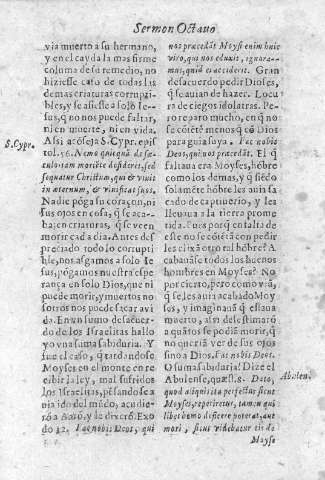 Sermon Octauo
vía muerto a su hermano,
y en el cayda la mas firme
coluna de su remedio, no
hiziesse caso de todas las
demas criaturas corrupti-
bles, y se asiesse a solo Ie-
sus, q̃ no nos puede faltar,
ni en muerte, ni en vida.
Assi acõseja S. Cypr. epist.
S. Cypr.
tol. 56. Nemo quiequã de sæ-
culo iam morite desideret, sed
sequatur Christum, qui & viuit
in æternum, & viuificat suos.
Nadie põga su coraçon, ni
sus ojos en cosa, q̃ se aca-
ba; en criaturas, q̃ se veen
morir cada dia. Antes des
preciado todo lo corrupti
ble, nos asgamos a solo Ie
sus, põgamos nuestra espe-
rança en solo Dios, que ni
puede morir, y muertos no
sotros nos puede sacar a vi
da. En vn sumo desacuer-
do de los Israelitas hallo
yo vna suma sabiduria. Y
fue el caso, q̃ tardandose
Moyses en el monte en re
cibir la ley, mal sufridos
los Israelitas, pẽsando se a
nia ido del mũdo, acudie
rõ a Aarõ, y le dixerõ. Exo
do 32. Fac nobis Deos, qui
nos præcedãt. Moysi enim huic
viro, qui nos eduxit, ignora-
mus, quid ei acciderit. Gran
desacuerdo pedir Dioses,
q̃ se auian de hazer. Locu
ra de ciegos idolatras. Pe-
ro reparo mucho, en q̃ no
se cõtẽte menos q̃ cõ Dios
para guia suya. Fac nobis
Deos, qui nos præcedãt. El q̃
faltaua era Moyses, hõbre
como los demas, y q̃ siẽdo
solamẽte hõbre les auia sa
cado de captiuerio, y les
lleuaua a la tierra prome
tida. Pues porq̃ en falta de
esse no se cõtẽtã con pedir
les diesẽ otro tal hõbre? A-
cabaronse todos los buenos
hombres en Moyses? No
por cierto, pero como vierã,
q̃ se les auia acabado Moy
ses, y imaginauã q̃ estaua
muerto, assi desestimarõ
a quãtos se podiã morir, q̃
no querẽ ver de sus ojos
sino a Dios. Fac nobis Deos.
O suma sabiduria! Dize el
Abulense, quæst. 8. Dato,
Abulen.
quod aliquis ita perfectus sicut
Moyses, reperiretur, tamen qui
libet homo deficere poterat, aut
mori, sicut videbatur eis de
Moyse